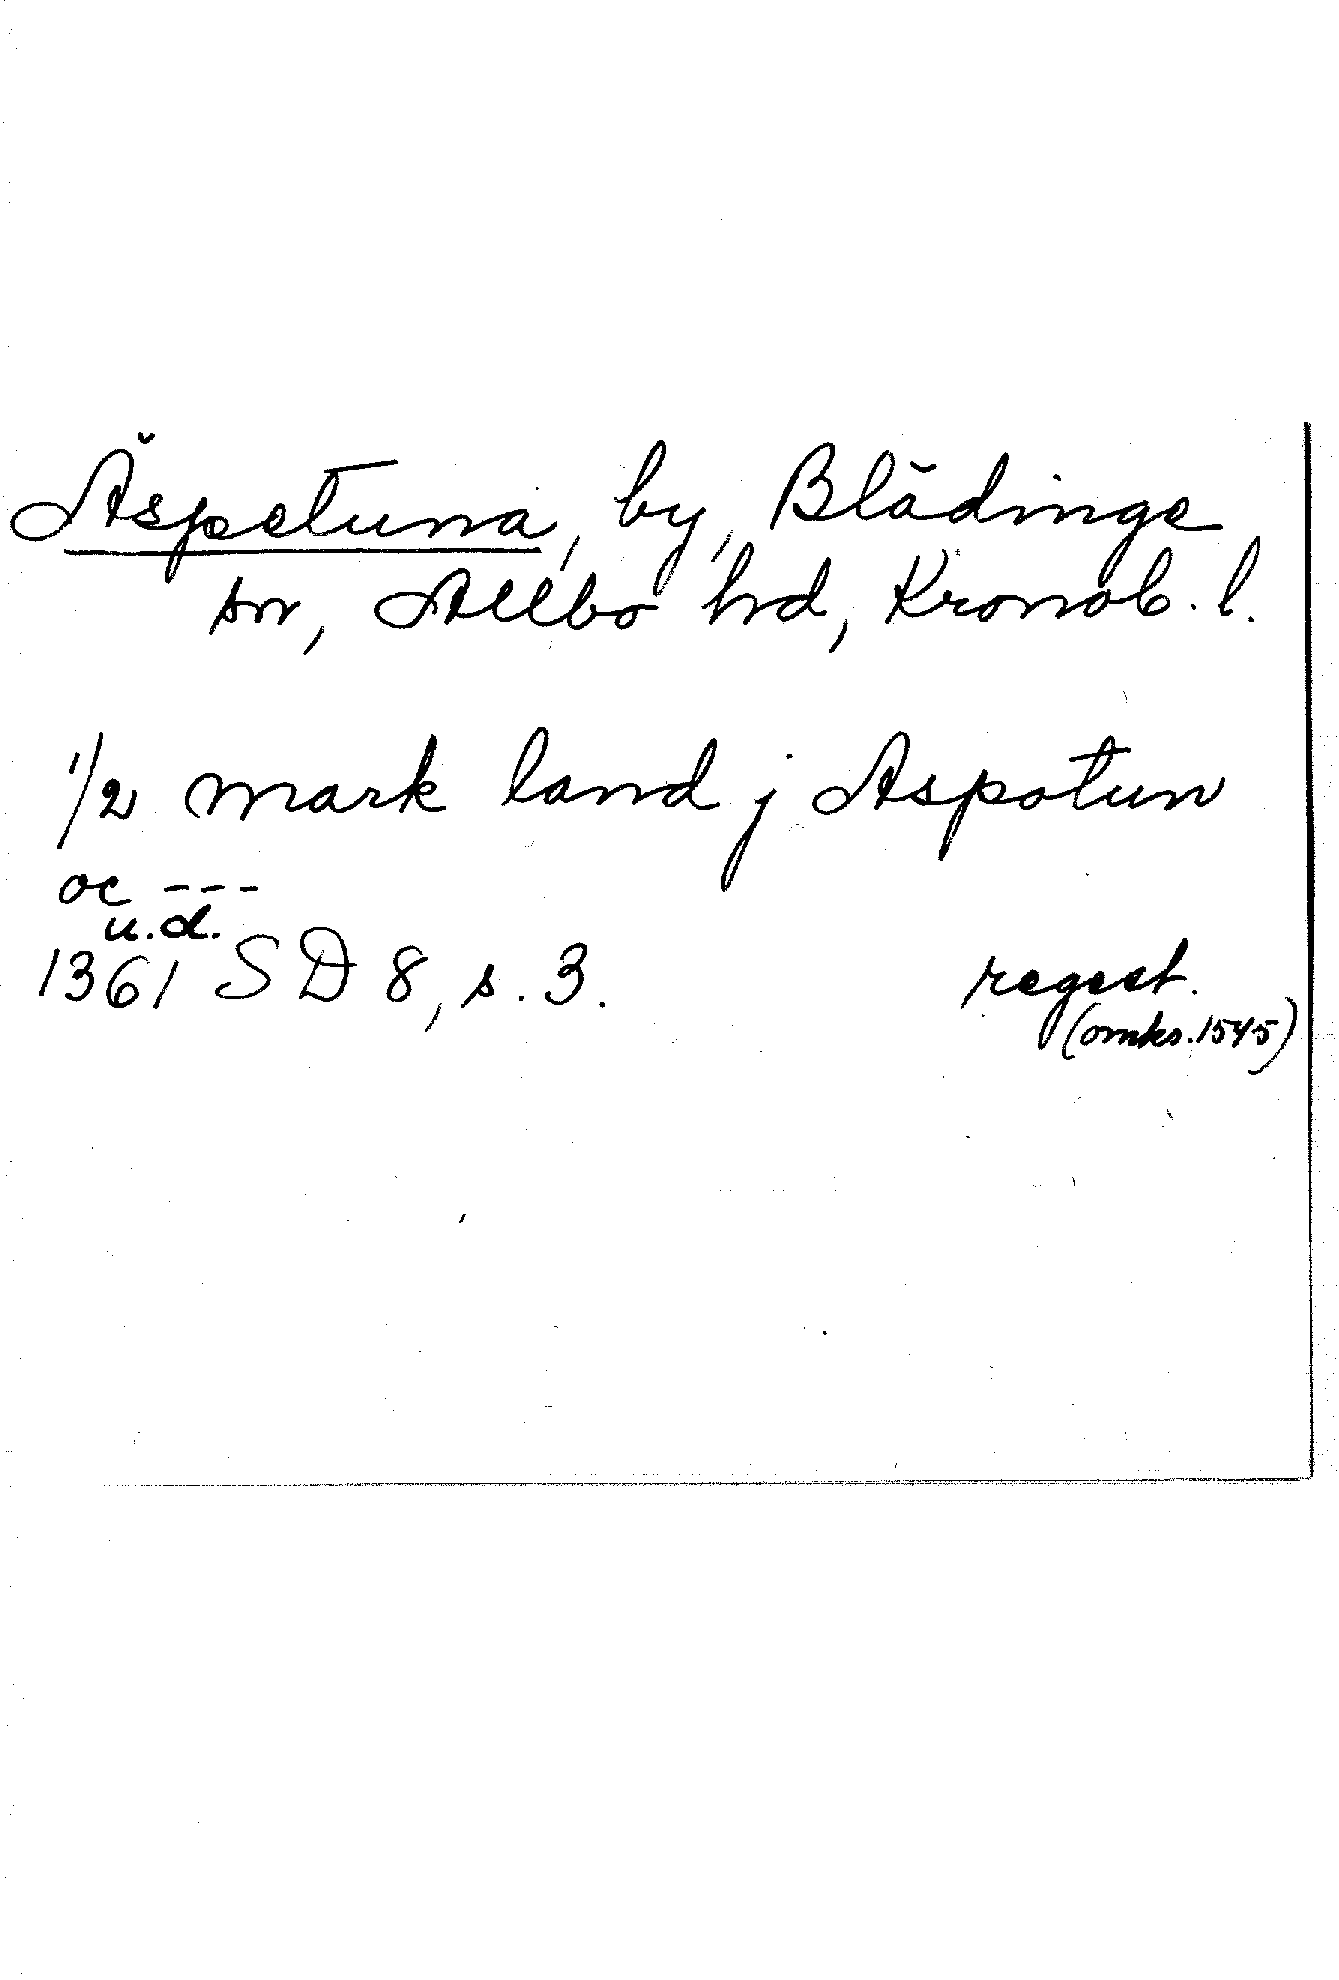 Äspetuna, by, Blädinge
sn, Allbo hd, Kronob. l.
1/2 mark land j Aspotun
oc ---
u.d.
1361 SD 8, s. 3. regest.
(omkr. 1545)